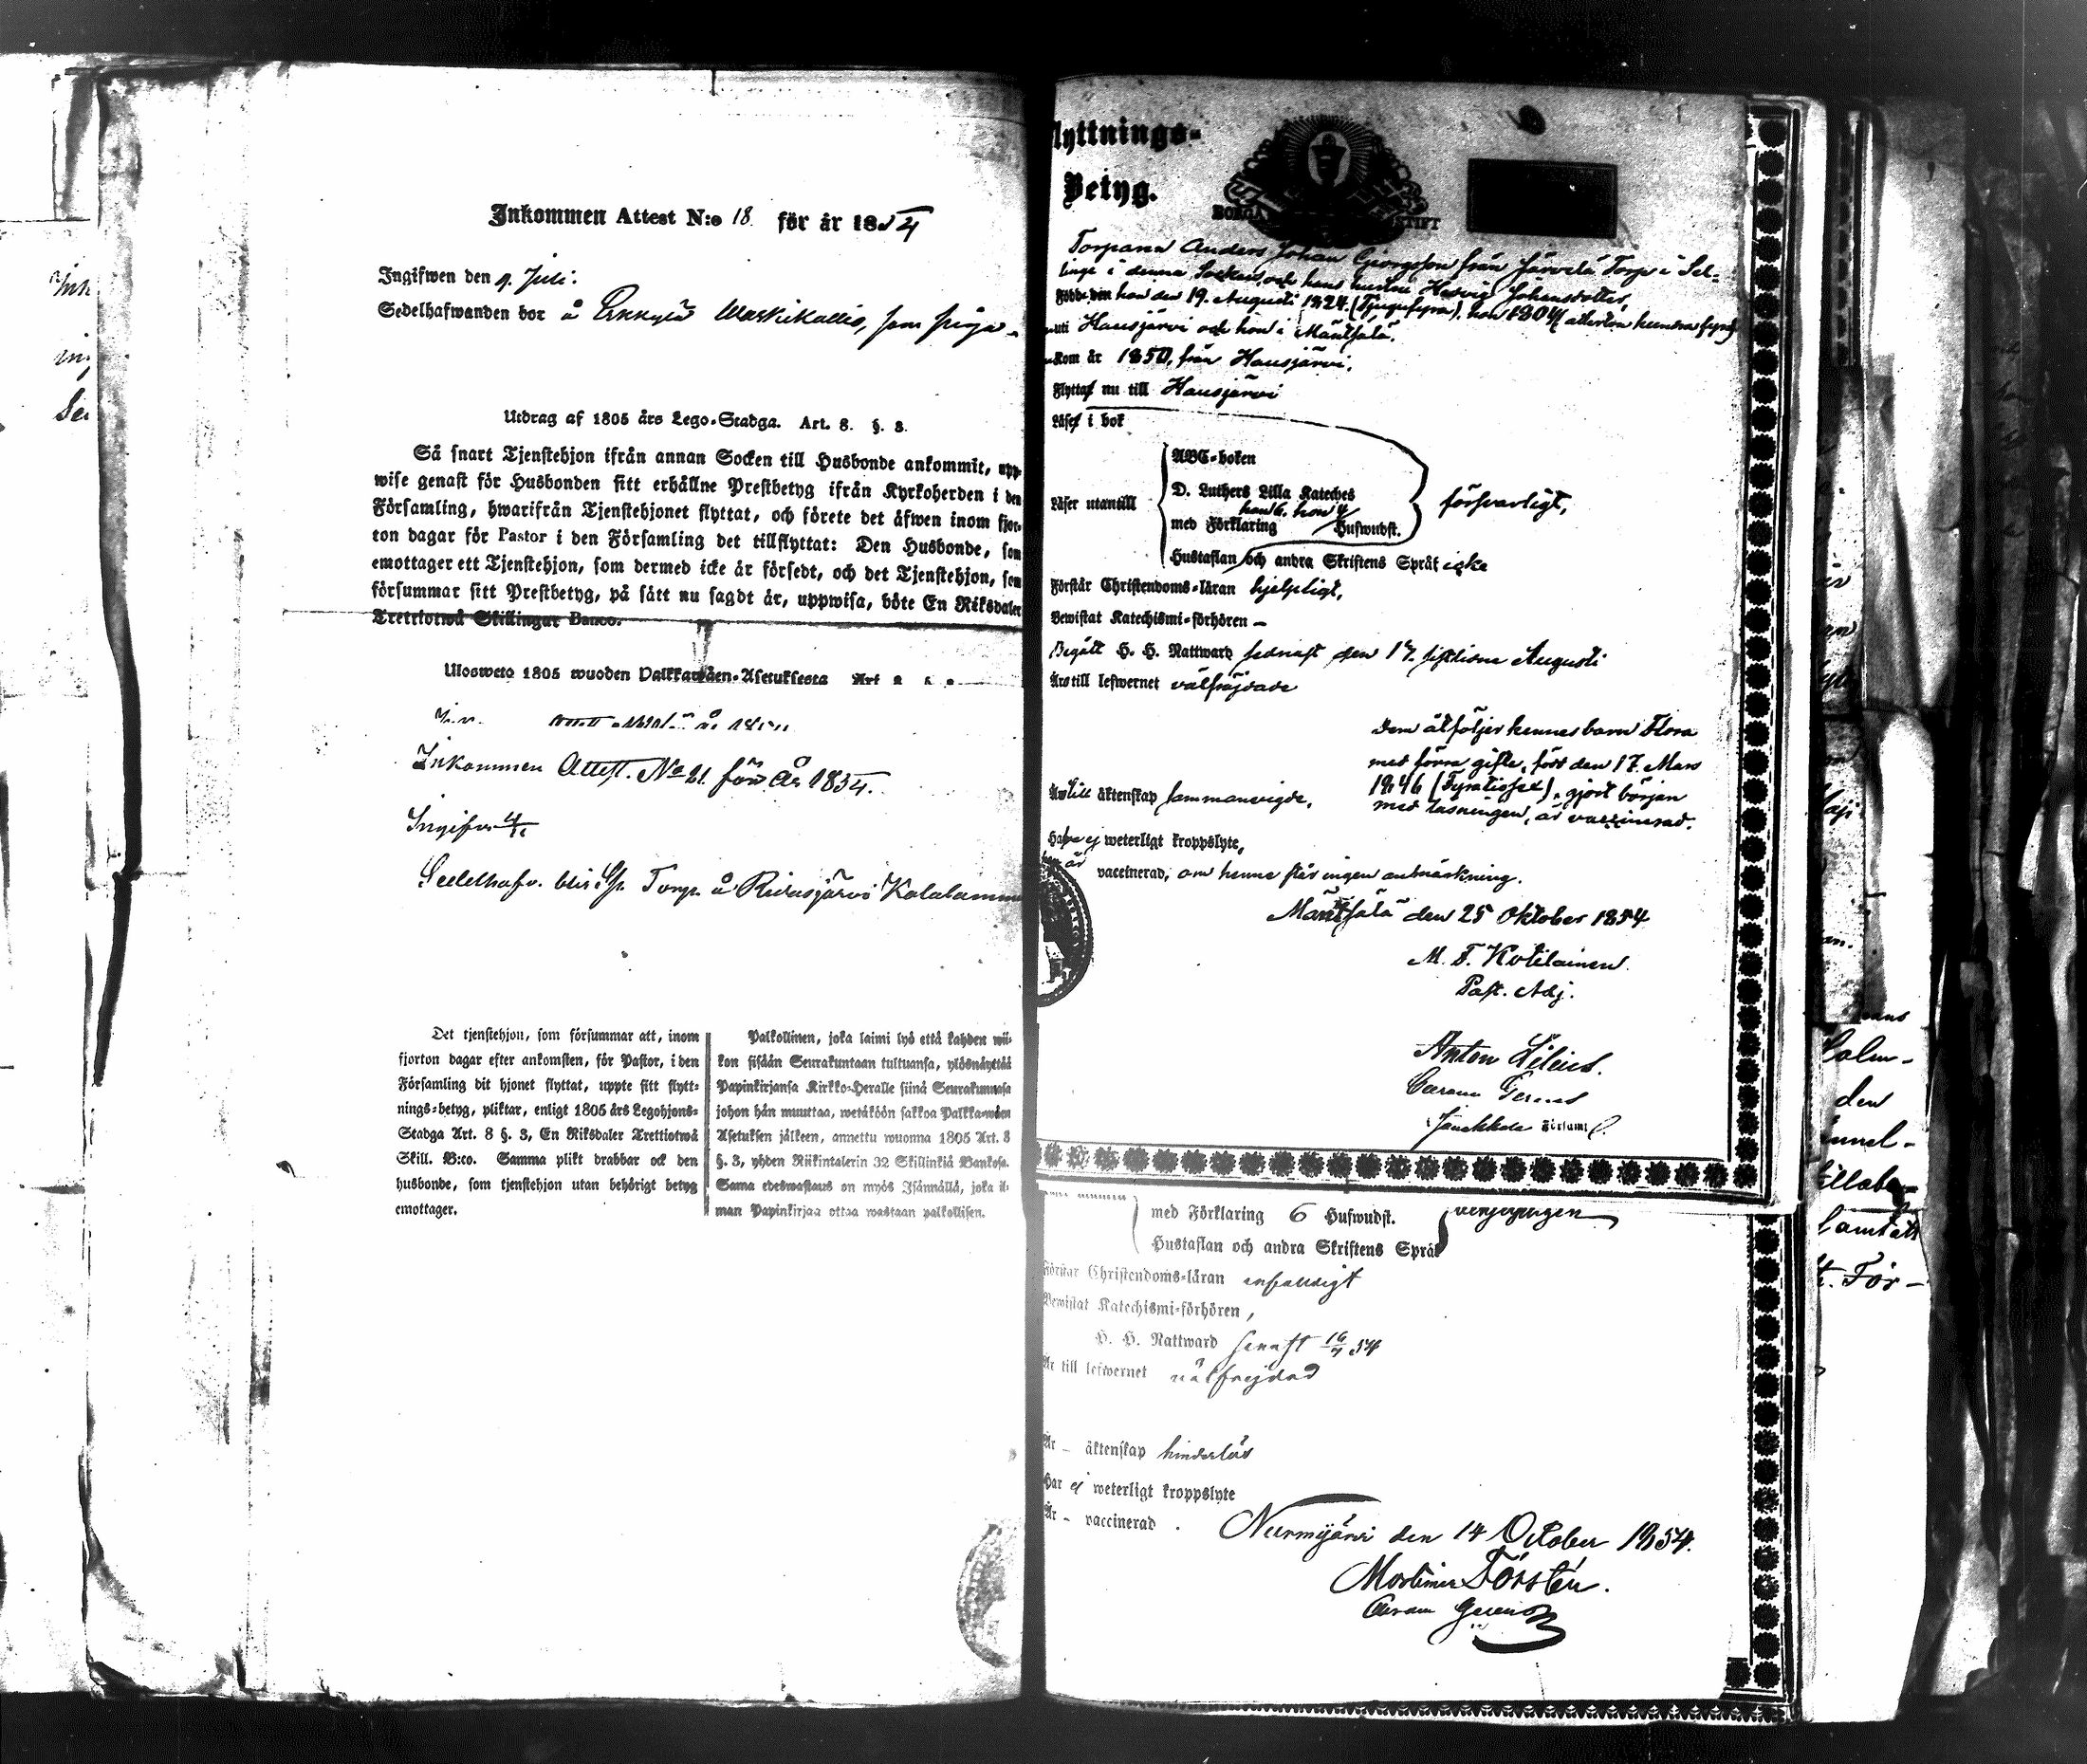 Inkommen Attest N:o 18. för år 1854
Ingifwen den 9. Juli:
Sedelhafwanden bor å Erkkylä Waskikallio, som piga
Utdrag af 1805 års Lego-Stadga. Art. 8. §. 3.
Så snart Tjenstehjon ifrån annan Socken till Husbonde ankommit, upp-
wise genast för Husbonden sitt erhållne Prestbetyg ifrån Kyrkoherden i den
Församling, hwarifrån Tjenstehjonet flyttat, och förete det äfwen inom fjor-
ton dagar för Pastor i den Församling det tillflyttat: Den Husbonde, som
emottager ett Tjenstehjon, som dermed icke är försedt, och det Tjenstehjon, som
försummar sitt Prestbetyg, på sätt nu sagdt är, uppwisa, böte En Riksdaler
Trettiotwå Skillingar Banco.
Ulosweto 1805 wuoden Palkkawäen-Asetuksesta Art
Inkommen Attest. No 21. för År 1854.
Ingifven
Sedelhafv. blir Torp. å Ridasjärvi Kalalammi
Det tjenstehjon, som försummar att, inom
fjorton dagar efter ankomsten, för Pastor, i den
Församling dit hjonet flyttat, uppte sitt flytt-
nings-betyg, pliktar, enligt 1805 års Legohjons-
Stadga Art. 8 §. 3, En Riksdaler Trettiotwå
Skill. B:co. Samma plikt drabbar ock den
husbonde, som tjenstehjon utan behörigt betyg
emottager.
Palkollinen, joka laimi lyö että kahden wii-
kon sisään Seurakuntaan tultuansa, ylösnäyttää
Papinkirjansa Kirkko-Heralle siinä Seurakunnasa
johon hän muuttaa, wetäköön sakkoa Palkka-wäen
Asetuksen jälkeen, annettu wuonna 1805 Art. 8
§. 3, yhden Riikintalerin 32 Skillinkiä Bankosa.
Sama edeswastaus on myös Isännällä, joka il-
man Papinkirjaa ottaa wastaan palkollisen.
lyttnings-
Betyg.
BORGÅ STIFT
Torparen Anders Johan Georgsson från Järvelä Torp i Sel-
linge i denna Socken, och hans hustru Hedvig Johansdotter,
Födde den han den 19. Augusti 1824. (Tjugufyra), hon 1804 adertonhundrafyra
uti Hausjärvi och hon i Mäntsälä.
kom år 1850, från Hausjärvi.
Flytta nu till Hausjärvi
Läse i bok
ABC-boken
D. Luthers Lilla Kateches
Läser utantill
han 6. hon 4
med Förklaring Hufwudst.
försvarligt,
Hustaflan och andra Skriftens Språk icke
Förstår Christendoms-läran hjelpligt,
Bewistat Katechismi-förhören –
Begått H. H. Nattward sednast den 17. sistlidne Augusti
Äro till lefwernet välfräjdade
Dem åtföljer hennes barn Flora
med förra gifte, född den 17. Mars
1846 (Fyratiosex), gjort början
med läsningen, är vaccinerad.
Äro till äktenskap sammanvigde,
Hafva ej weterligt kroppslyte,
han är
vaccinerad, om henne står ingen anmärkning.
Mäntsälä den 25 Oktober 1854
M. F. Kotilainen.
Past. Adj.
Anton Lilius.
Coram
Janakkala Församl.
med Förklaring 6 Hufwudst.
Hustaflan och andra Skriftens Språk
Förstår Christendoms-läran enfaldigt
Bewistat Katechismi-förhören,
H. H. Nattward senast 16/7 54
Är till lefwernet välfrejdad
Är – äktenskap hinderlös
Har ej weterligt kroppslyte
Är – vaccinerad.
Nurmijärvi den 14 October 1854.
Mortimer Forstén.
Coram